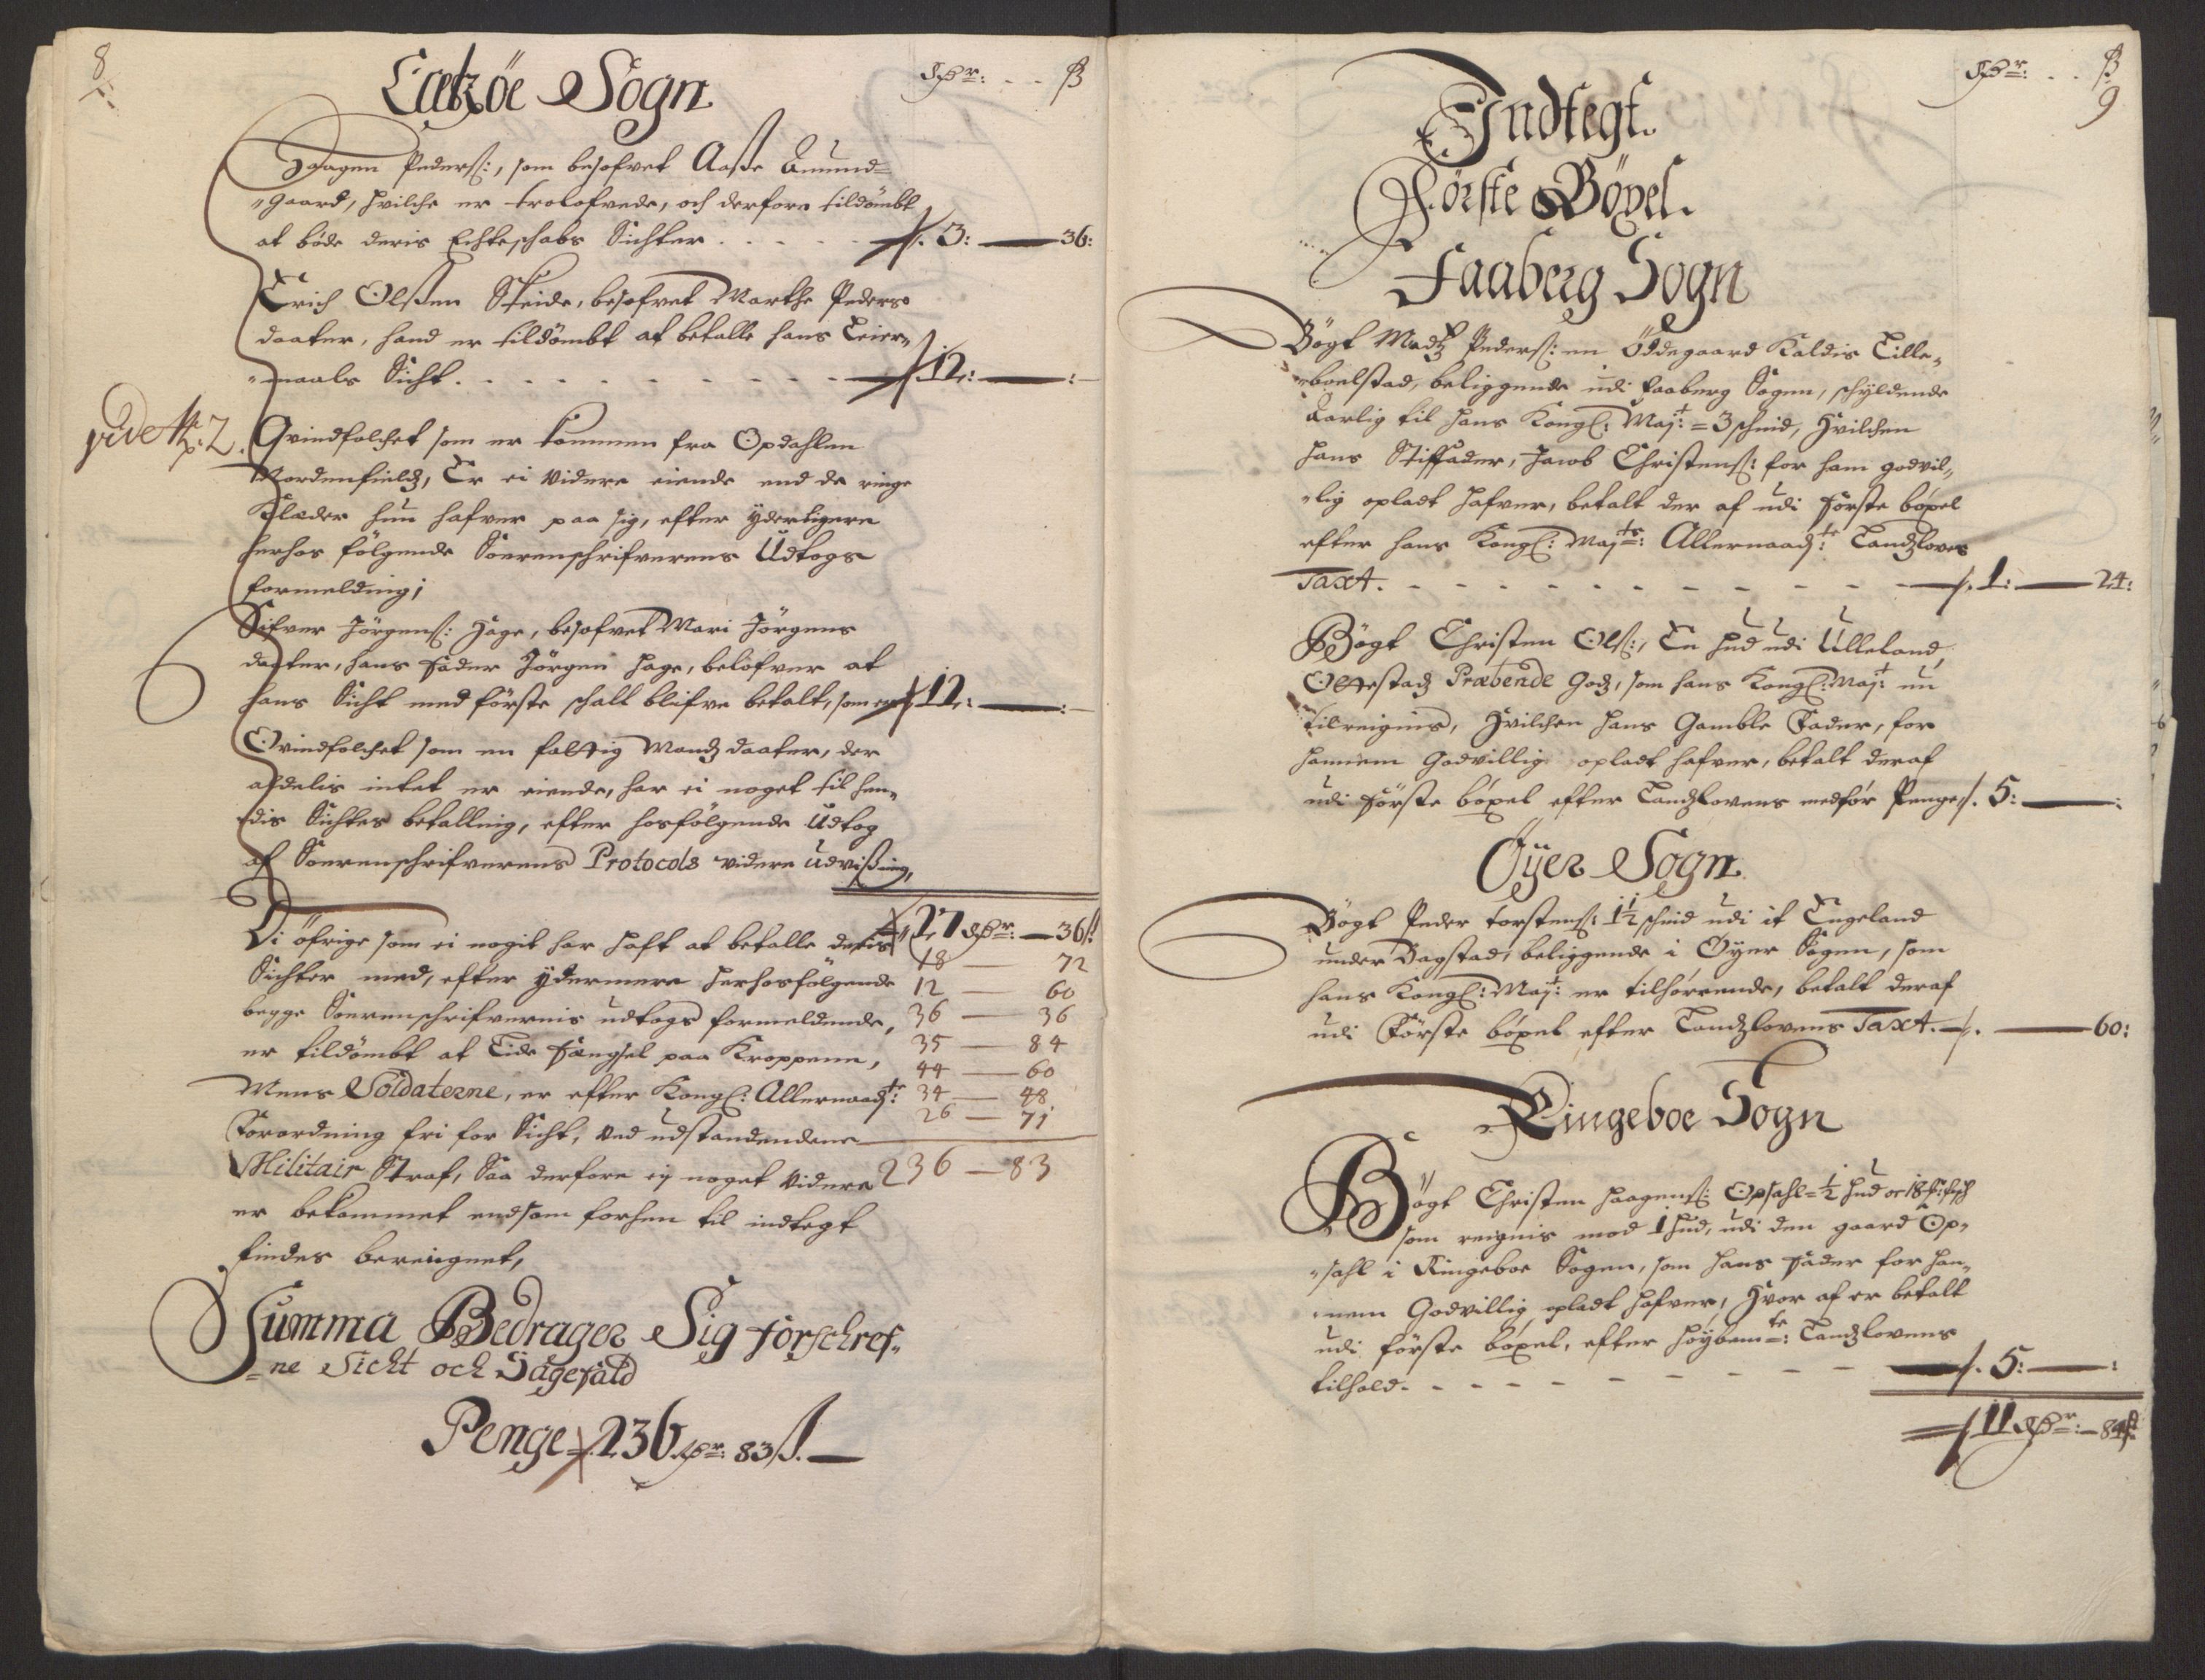 8
Dhr: - - ß
Haagen Peders:, som besofvet Aaße Amund-
gaard, hvilche er trolofvede, och derfore tildömbt
at böde deris Echteschabs Sichter . . . . 3: — 36:
Erich Olßen Skeide, besofvet Marthe Peders
daater, hand er tildömbt at betalle hans Leier-
maals Sicht. - - - - - - - 12: — :
vide No: 2.
Qvindfolchet som er kommen fra Opdahlen
Nordenfields, Er ei videre eiende end de ringe
Klæder hun hafver paa sig, efter ÿderligere
herhos fölgende Sorenschrifverens Udtogs
formelding;
Sifver Jörgens: Hage, besofvet Mari Jörgens
daater, hans fader Jörgen Hage, belofver at
hans Sicht med förste schall blifve betalt, som er 12: — :
Qvindfolchet som en fattig Mandz daater, der
aldelis intet er eiende, har ei noget til hen-
dis Sichtes betalling, efter hosfölgende Udtog
af Sorenschrifverens Protocols videre Udvißing,
27 Dhr: — 36ß
Di öfrige som ei nogit har haft at betalle deris
Sichter med, efter ÿdermere herhosfölgende
begge Sorenschrifvernis udtogs formeldende,
er tildömbt at Lide fængsel paa Kroppenn,
Mens Soldaterne, er efter Kongl: Allernaadte:
Forordning fri for Sicht, ved udstandendene
Militair Straf, Saa derfore ej noget videre
er bekommet end som forhen til indtegt
findes bereignet,
18 — 72
12 — 60
36 — 36
35 — 84
44 — 60
34 — 48
26 — 71
236 — 83
Summa Bedrager Sig forschref-
ne Sicht och Sagefald
Penge 236 Dhr: 83ß. —
Dhr: . . ß
9
Indtegt.
Förste Böxel.
Faaberg Sogn
Bögt Madz Peders: en Ödegaard Kaldis Lille-
boelstad, beliggende udi Faaberg Sogen, schÿldende
aarlig til hans Kongl: Mayt: = 3 schind, Hvilchen
hans Stiffader, Jacob Christens: for ham godvil-
lig opladt hafver, betalt der af udi förste böxel
efter hans Kongl: Mayts: Allernaadte: Landzloves
Taxt. - - - - - - - - - 1: — 24:
Bögt Christen Ols:, En hud udi Ulleland,
Olstestadz Præbende Godz, som hans Kongl: Mayt: nu
tilreignis, Hvilchen hans Gamble Fader, for
hannem Godvillig opladt hafver, betalt deraf
udi förste böxel efter Landzlovens medför Penge 5: — :
Öÿer Sogn
Bögt Peder Torstens: 1½ schind udi it Engeland
under Bagstad, beliggende i Öyer Sogen, som
hans Kongl: Mayt: er tilhörende, betalt deraf
udi Förste böxel efter Landzlovens Taxt. — 60:
Ringeboe Sogn
Bögt Christen Haagens: Opsahl = ½ hud oc 18
som reignis mod 1 hud, udi den gaard Op-
sahl i Ringeboe Sogen, som hans fader for han-
nem Godvillig opladt hafver, Hvor af er betalt
udi förste böxel, efter höÿbemte: Landzlovens
tilhold. - - - - - - - 5: — :
11 Dhr: — 84ß